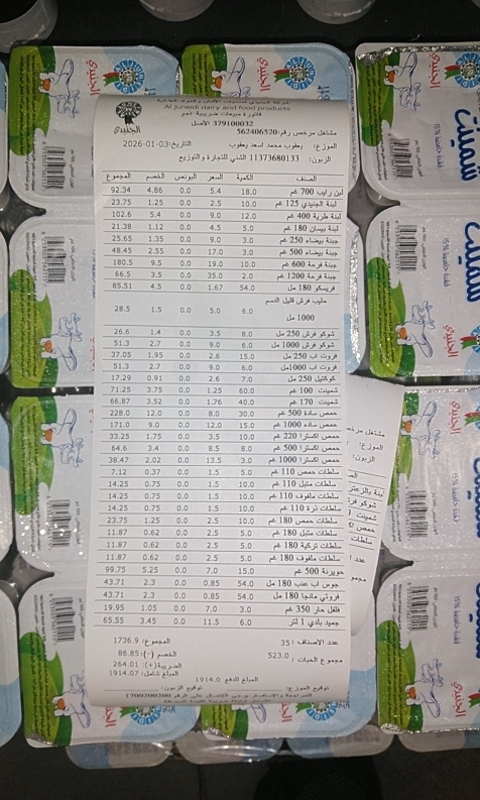 شركة الجنيدي لمنتجات الألبان والمواد الغذائية
Al juneidi dairy and food products
فاتورة مبيعات ضريبية
379100032 الأصل
الجنيدي
مشتغل مرخص رقم:562406520
الموزع: يعقوب محمد اسعد يعقوب التاريخ:03-01-2026
الزبون: 11373680133 الشني للتجارة و التوزيع
الصنف الكمية السعر البونص الخصم المجموع
لبن رايب 700 غم 18.0 5.4 0.0 4.86 92.34
لبنة الجنيدي 125 غم 10.0 2.5 0.0 1.25 23.75
لبنة طرية 400 غم 12.0 9.0 0.0 5.4 102.6
لبنة بيسان 180 غم 5.0 4.5 0.0 1.12 21.38
جبنة بيضاء 250 غم 3.0 9.0 0.0 1.35 25.65
جبنة بيضاء 500 غم 3.0 17.0 0.0 2.55 48.45
جبنة فرحة 600 غم 10.0 19.0 0.0 9.5 180.5
جبنة فرحة 1200 غم 2.0 35.0 0.0 3.5 66.5
فريسكو 180 مل 54.0 1.67 0.0 4.5 85.51
حليب فرش قليل الدسم 1000 مل 6.0 5.0 0.0 1.5 28.5
شوكو فرش 250 مل 8.0 3.5 0.0 1.4 26.6
شوكو فرش 1000 مل 6.0 9.0 0.0 2.7 51.3
فروت اب 250 مل 15.0 2.6 0.0 1.95 37.05
فروت اب 1000مل 6.0 9.0 0.0 2.7 51.3
كوكتيل 250 مل 7.0 2.6 0.0 0.91 17.29
شمينت 100 غم 60.0 1.25 0.0 3.75 71.25
شمينت 170 غم 40.0 1.76 0.0 3.52 66.87
حمص سادة 500 غم 30.0 8.0 0.0 12.0 228.0
حمص سادة 1000 غم 15.0 12.0 0.0 9.0 171.0
حمص اكسترا 220 غم 10.0 3.5 0.0 1.75 33.25
حمص اكسترا 500 غم 8.0 8.5 0.0 3.4 64.6
حمص اكسترا 1000 غم 3.0 13.5 0.0 2.02 38.47
سلطات حمص 110 غم 5.0 1.5 0.0 0.37 7.12
سلطات متبل 110 غم 10.0 1.5 0.0 0.75 14.25
سلطات ملفوف 110 غم 10.0 1.5 0.0 0.75 14.25
سلطات ذرة 110 غم 10.0 1.5 0.0 0.75 14.25
سلطات حمص 180 غم 10.0 2.5 0.0 1.25 23.75
سلطات متبل 180 غم 5.0 2.5 0.0 0.62 11.87
سلطات تركية 180 غم 5.0 2.5 0.0 0.62 11.87
سلطات ملفوف 180 غم 5.0 2.5 0.0 0.62 11.87
جويرنة 500 غم 15.0 7.0 0.0 5.25 99.75
جوس اب عنب 180 مل 54.0 0.85 0.0 2.3 43.71
فروتي مانجا 180 مل 54.0 0.85 0.0 2.3 43.71
فلفل حار 350 غم 3.0 7.0 0.0 1.05 19.95
جميد بلدي 1 لتر 6.0 11.5 0.0 3.45 65.55
عدد الاصناف : 35 المجموع: 1736.9
مجموع الحبات : 523.0 الخصم (-): 86.85
الضريبة(+): 264.01
المبلغ شامل: 1914.07
المبلغ للدفع 1914.0
توقيع الموزع: توقيع الزبون:
1700200200
شمينت
الجنيدي
15%